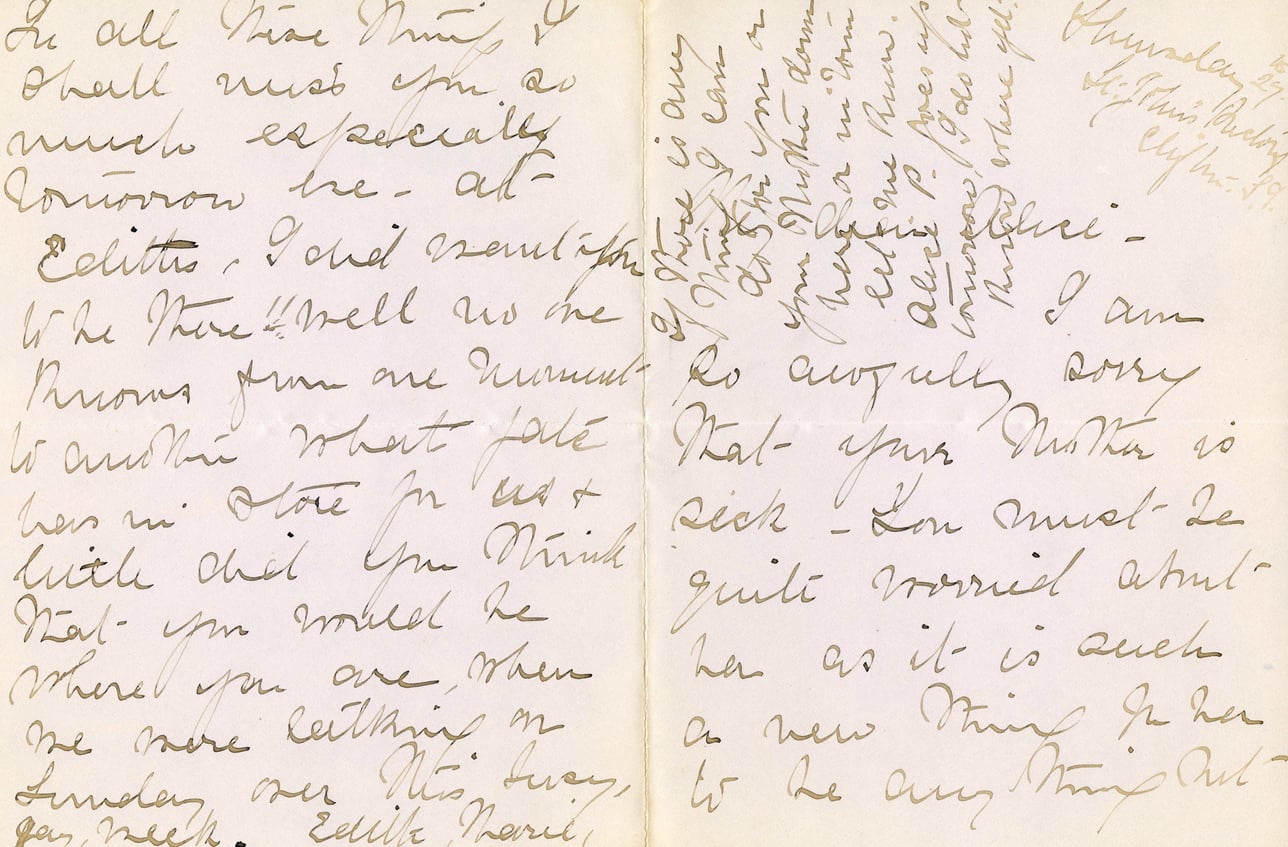 Thursday
St. John's Rectory
Clifton. S.I.
My dear Alice -
I am
so awfully sorry
that your Mother is
sick - You must be
quite worried about
her as it is such
a new thing for her
to be any thing but
In all these things I
shall miss you so
much especially
tomorrow eve - at
Edith's, I did want you
to be there!! well no one
knows from one moment
to another what fate
has in store for us &
little did you think
that you would be
where you are, when
we were talking on
Sunday over this busy,
gay, week. Edith, Marie,
If there is any
thing I can
do for you or
your Mother down
here or in town
let me know.
Alice P. goes up
tomorrow, I do not
know where yet.